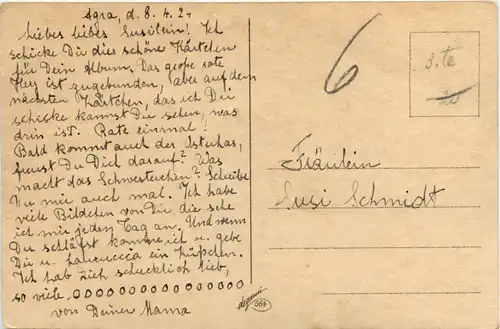 Agra, d. 8. 4. 24
Liebes liebes Susilein! Ich
schicke Dir dies schöne Kärtchen
für Dein Album. Das grosse rote
Herz ist zugebunden, aber auf dem
nächsten Kärtchen, das ich Dir
schicke kannst Du sehen, was
drin ist. Rate einmal!
Bald kommt auch der Osterhas,
freust Du Dich darauf? Was
macht das Schwesterchen? Schreibe
Du mir auch mal. Ich habe
viele Bildchen von Dir die sehe
ich mir jeden Tag an. Und wenn
Du schläfst komme ich u. gebe
Dir u. ein Küsschen.
Ich hab Dich schrecklich lieb,
so viele ooooooooooooooooo
von Deiner Mama
6
3.te
Fräulein
Susi Schmidt
664